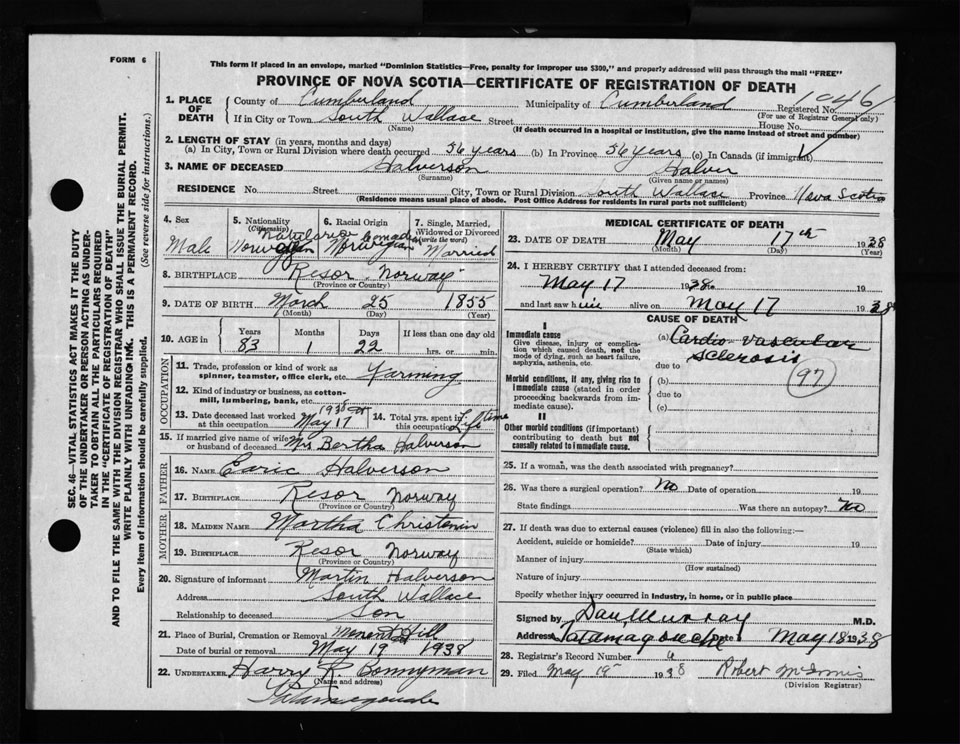 FORM 6
This form if placed in an envelope, marked "Dominion Statistics—Free, penalty for improper use $300," and properly addressed will pass through the mail "FREE"
PROVINCE OF NOVA SCOTIA—CERTIFICATE OF REGISTRATION OF DEATH
SEC. 46—VITAL STATISTICS ACT MAKES IT THE DUTY
OF THE UNDERTAKER OR PERSON ACTING AS UNDER-
TAKER TO OBTAIN ALL THE PARTICULARS REQUIRED
IN THE "CERTIFICATE OF REGISTRATION OF DEATH"
AND TO FILE THE SAME WITH THE DIVISION REGISTRAR WHO SHALL ISSUE THE BURIAL PERMIT.
WRITE PLAINLY WITH UNFADING INK. THIS IS A PERMANENT RECORD.
Every item of Information should be carefully supplied. (See reverse side for instructions.)
1. PLACE OF DEATH County of Cumberland Municipality of Cumberland Registered No. 1046
(For use of Registrar General only)
If in City or Town South Wallace Street House No.
(Name) (If death occurred in a hospital or institution, give the name instead of street and number)
2. LENGTH OF STAY (in years, months and days)
(a) In City, Town or Rural Division where death occurred 56 years (b) In Province 56 years (c) In Canada (if immigrant)
3. NAME OF DECEASED Halverson Halver
(Surname) (Given name or names)
RESIDENCE No. Street City, Town or Rural Division South Wallace Province Nova Scotia
(Residence means usual place of abode. Post Office Address for residents in rural parts not sufficient)
4. Sex Male
5. Nationality (Citizenship) Norwegian
6. Racial Origin Norwegian
7. Single, Married, Widowed or Divorced (write the word) Married
8. BIRTHPLACE Resor Norway
(Province or Country)
9. DATE OF BIRTH March 25 1855
(Month) (Day) (Year)
10. AGE in Years Months Days If less than one day old
83 1 22 hrs. or min.
OCCUPATION
11. Trade, profession or kind of work as spinner, teamster, office clerk, etc. Farming
12. Kind of industry or business, as cotton-mill, lumbering, bank, etc.
13. Date deceased last worked at this occupation May 17 1938
14. Total yrs. spent in this occupation Life time
15. If married give name of wife or husband of deceased Mrs Bertha Halverson
FATHER
16. NAME Halverson
17. BIRTHPLACE Resor Norway
(Province or Country)
MOTHER
18. MAIDEN NAME Martha
19. BIRTHPLACE Resor Norway
(Province or Country)
20. Signature of informant Martin Halverson
Address South Wallace
Relationship to deceased Son
21. Place of Burial, Cremation or Removal Hill
Date of burial or removal May 19 1938
22. UNDERTAKER Harry R. Bonnyman
(Name and address)
MEDICAL CERTIFICATE OF DEATH
23. DATE OF DEATH May 17th 1938
(Month) (Day) (Year)
24. I HEREBY CERTIFY that I attended deceased from:
May 17 1938
and last saw him alive on May 17 1938
CAUSE OF DEATH
I
Immediate cause
Give disease, injury or complication which caused death, not the mode of dying, such as heart failure, asphyxia, asthenia, etc.
(a) Cardio-vascular sclerosis
due to
97
Morbid conditions, if any, giving rise to immediate cause (stated in order proceeding backwards from immediate cause).
(b)
due to
(c)
II
Other morbid conditions (if important) contributing to death but not causally related to immediate cause.
25. If a woman, was the death associated with pregnancy?
26. Was there a surgical operation? No Date of operation 19
State findings Was there an autopsy? No
27. If death was due to external causes (violence) fill in also the following:—
Accident, suicide or homicide? Date of injury 19
(State which)
Manner of injury
(How sustained)
Nature of injury
Specify whether injury occurred in Industry, in home, or in public place
Signed by Dan Murray M.D.
Address Tatamagouche Date May 18 1938
28. Registrar's Record Number 6
29. Filed May 19 1938 Robert
(Division Registrar)